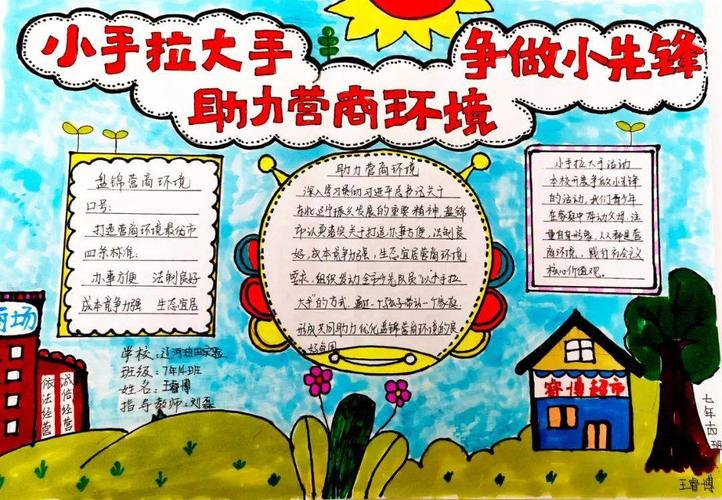 小手拉大手
争做小先锋
助力营商环境
盘锦营商环境
口号:
打造营商环境最优市
四条标准:
办事方便 法制良好
成本竞争力强 生态宜居
助力营商环境
深入学习贯彻习近平总书记关于
东北全面振兴发展的重要精神,盘锦
市认真落实关于打造办事方便,法制良
好,成本竞争力强,生态宜居营商环境
要求,组织发动全市少先队员"以小手拉
大手"的方式,通过一个孩子带动一个家庭
形成共同助力优化盘锦营商环境的良
好氛围
小手拉大手活动
本校开展争做小先锋
的活动,我们青少年
在家庭中带动父母,注
重自身形象,人人都是营
商环境,践行社会主义
核心价值观。
商场
依法经营
诚信经营
学校:
班级:7年14班
姓名:王睿博
指导教师:刘磊
睿博超市
七年四班
王睿博